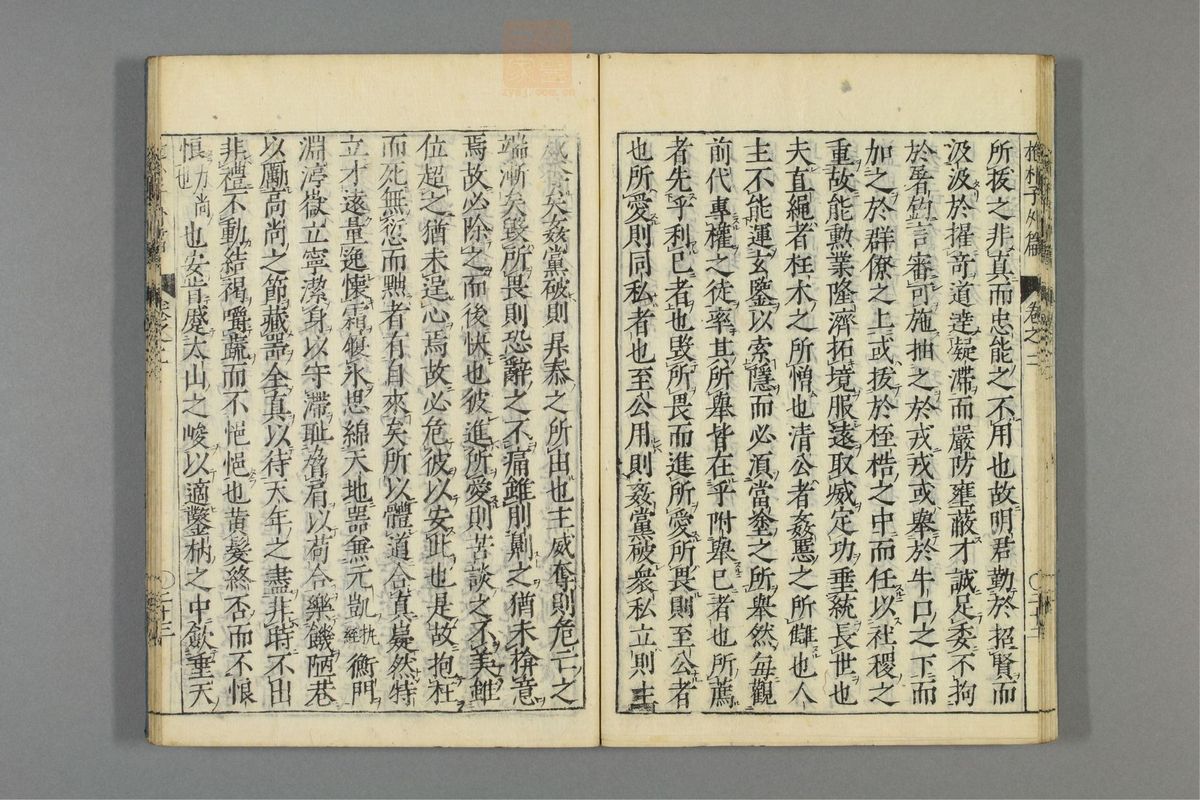 抱朴子外篇 卷之二
所拔之非真而忠能之不用也故明君勤於招賢而
汲汲於擢奇道達凝滯而嚴防壅蔽才誠足委不拘
於屠釣言審可施抽之於戎戎或舉於牛口之下而
加之於群僚之上或拔於桎梏之中而任以社稷之
重故能勲業隆濟拓境服遠取威定功垂統長世也
夫直繩者枉木之所憎也清公者姦慝之所讎也人
主不能運玄鑒以索隱而必須當塗之所舉然每觀
前代專權之徒率其所舉皆在乎附舉己者也所薦
者先乎利己者也毀所畏而進所愛所畏則至公者
也所愛則同私者也至公用則姦黨破衆私立則主
威奪矣姦黨破則昇泰之所由也主威奪則危亡之
端漸矣毀所畏則恐辭之不痛雖刖劓之猶未愜意
焉故必除之而後快也彼進所愛則苦談之不美雖
位超之猶未逞心焉故必危彼以安此也是故抱枉
而死無愆而黜者有自來矣所以體道合真嶷然特
立才遠量逸懷霜履氷思綿天地器無元凱杭經衡門
淵渟嶽立寧潔身以守滯耻脅肩以苟合樂饑陋巷
以勵高尚之節藏器全真以待天年之盡非時不出
非禮不動結褐嚼蔬而不悒悒也黄髮終否而不悢
悢力尚也也安肯蹙太山之峻以適鑿枘之中歛垂天
二十三